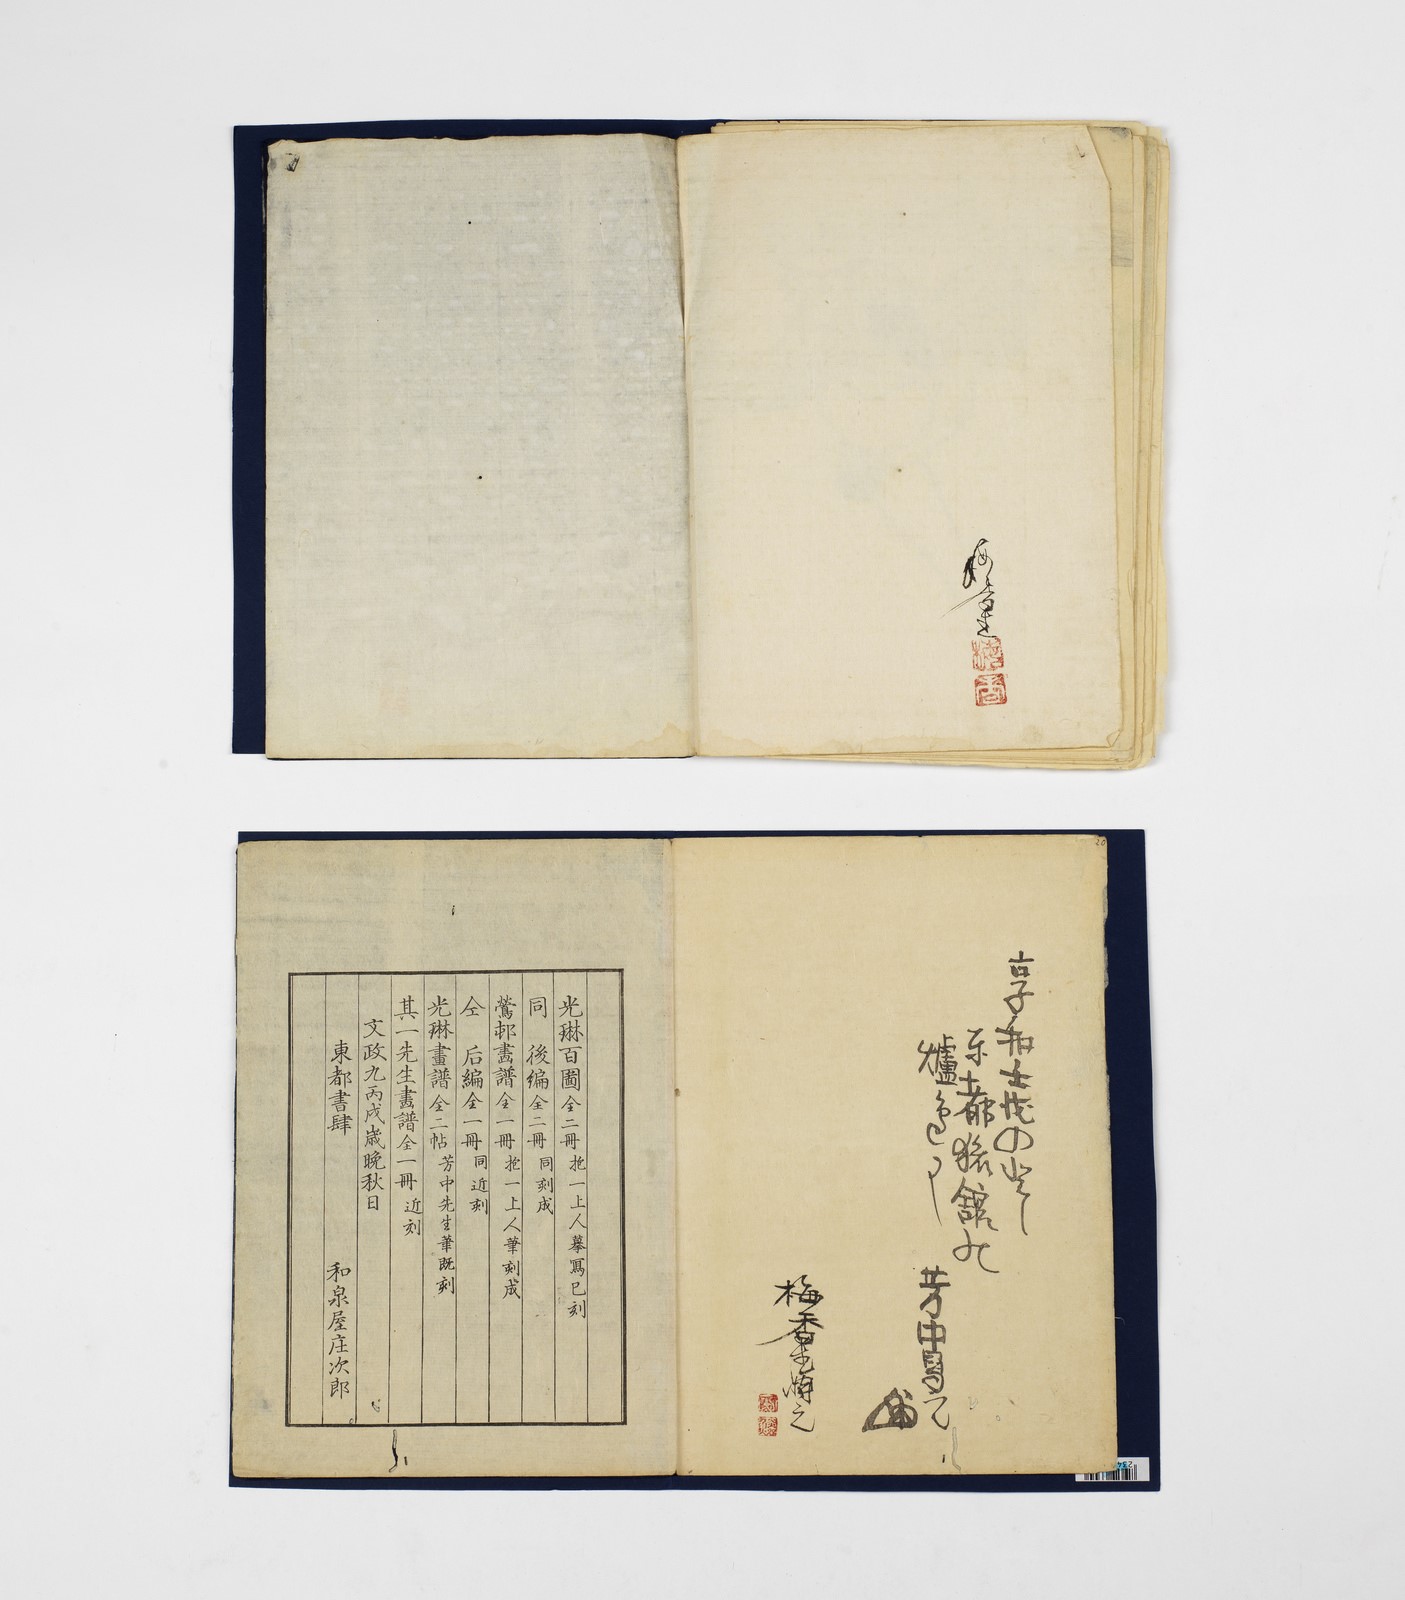 梅香
梅
香
享和壬戌の
東都旅館に
爐邊
芳中寫之
梅香
光琳百圖全二冊 抱一上人摹寫已刻
同 後編全二冊 同刻成
鶯邨畫譜全一冊 抱一上人筆刻成
仝 后編全一冊 同近刻
光琳畫譜全二帖 芳中先生筆既刻
其一先生畫譜全一冊 近刻
文政九丙戌歳晩秋日
東都書肆 和泉屋庄次郎
20